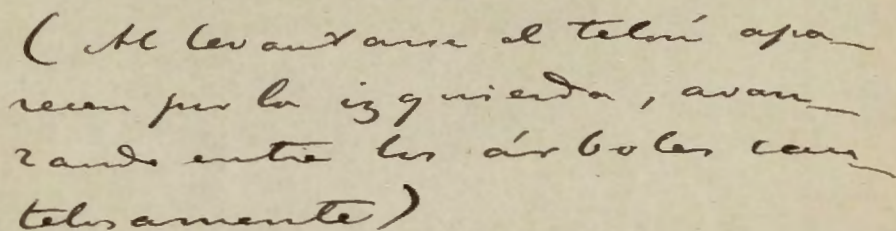 (Al levantarse el telón apa_
recen por la izquierda, avan_
zando entre los árboles cau_
telosamente)